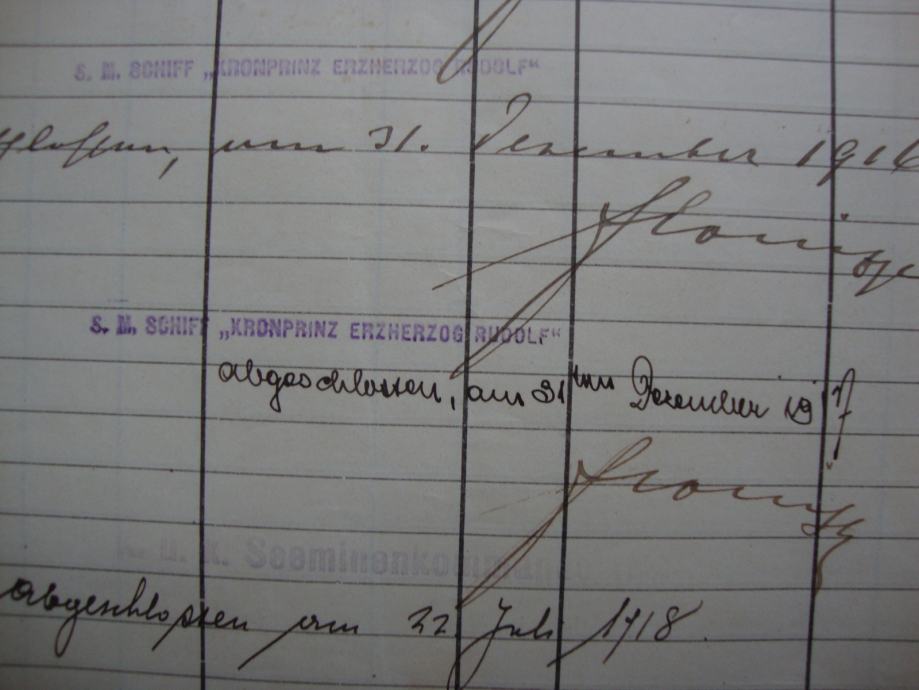 S. M. SCHIFF „KRONPRINZ ERZHERZOG RUDOLF“
schlossen, am 31. Dezember 1916
S. M. SCHIFF „KRONPRINZ ERZHERZOG RUDOLF“
abgeschlossen, am 31ten Dezember 1917
k. u. k. Seeminenkommando
abgeschlossen am 22 Juli 1918.